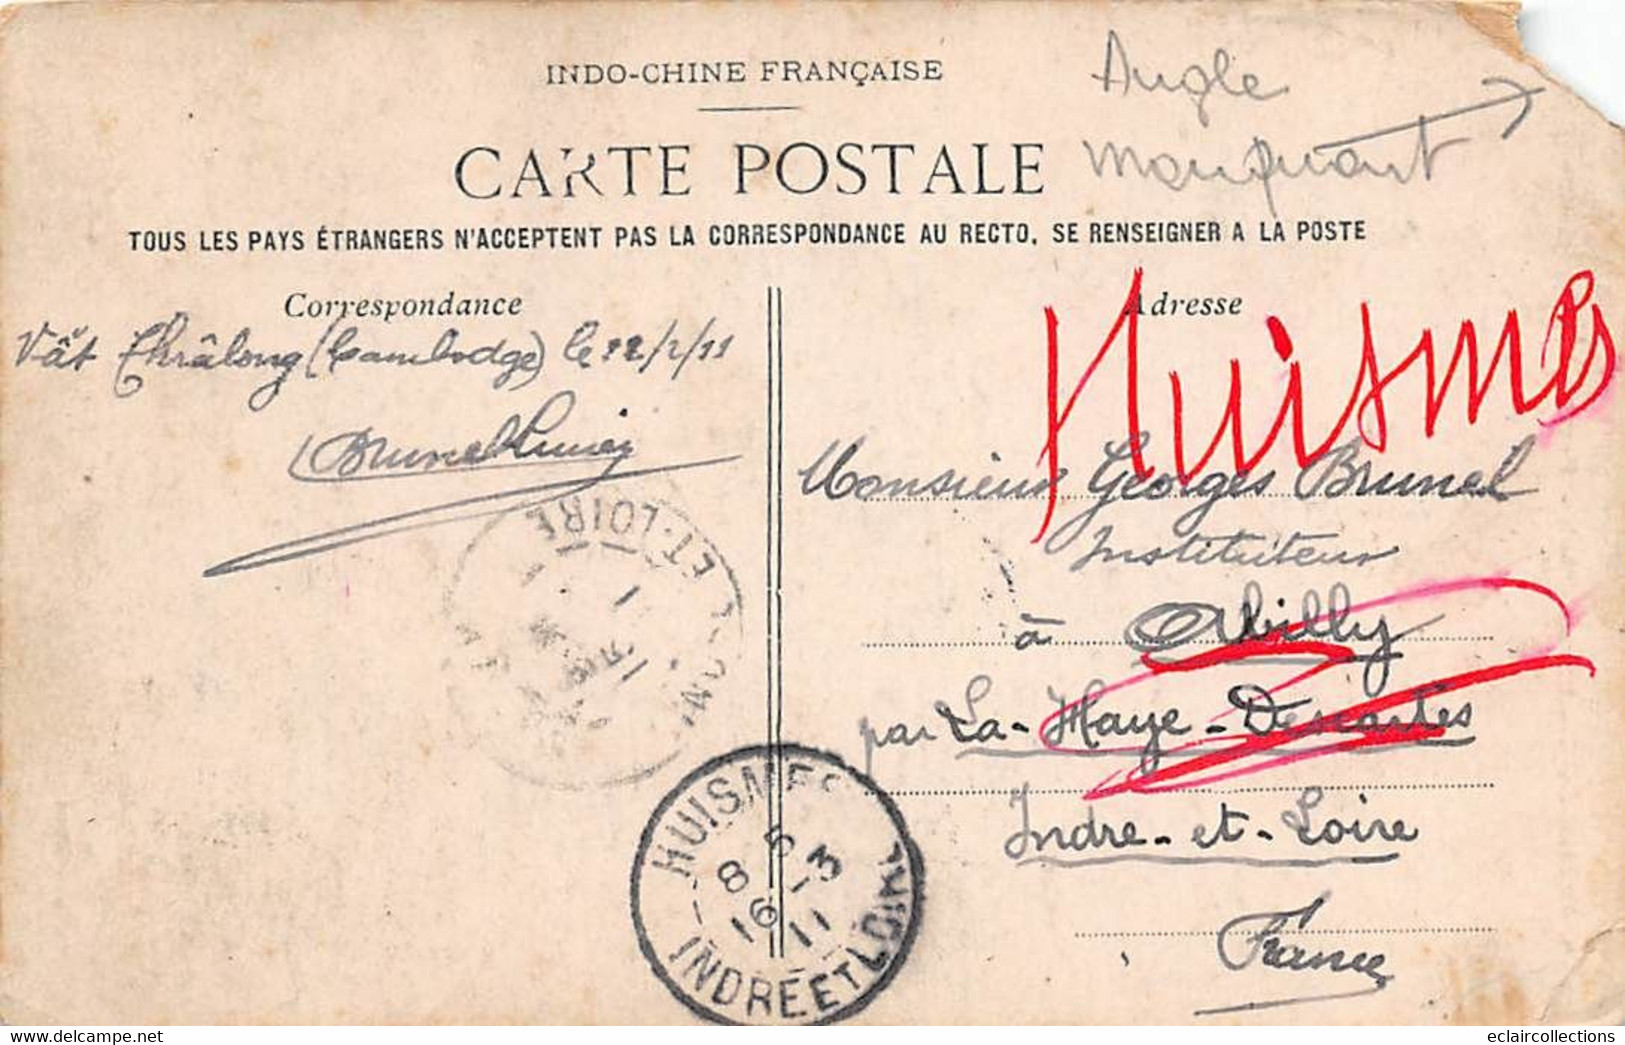 INDO-CHINE FRANÇAISE
Angle
manquant
CARTE POSTALE
TOUS LES PAYS ÉTRANGERS N'ACCEPTENT PAS LA CORRESPONDANCE AU RECTO, SE RENSEIGNER A LA POSTE
Correspondance
Adresse
Huismes
Vât Thrâlong (Cambodge) le 12/2/11
Monsieur Georges Brunel
Instituteur
à Abilly
par La-Haye-Descartes
Indre-et-Loire
France
ET-LOIRE
HUISMES
8 5 -3
16 11
INDRE ET LOIRE
www.delcampe.net
eclaircollections